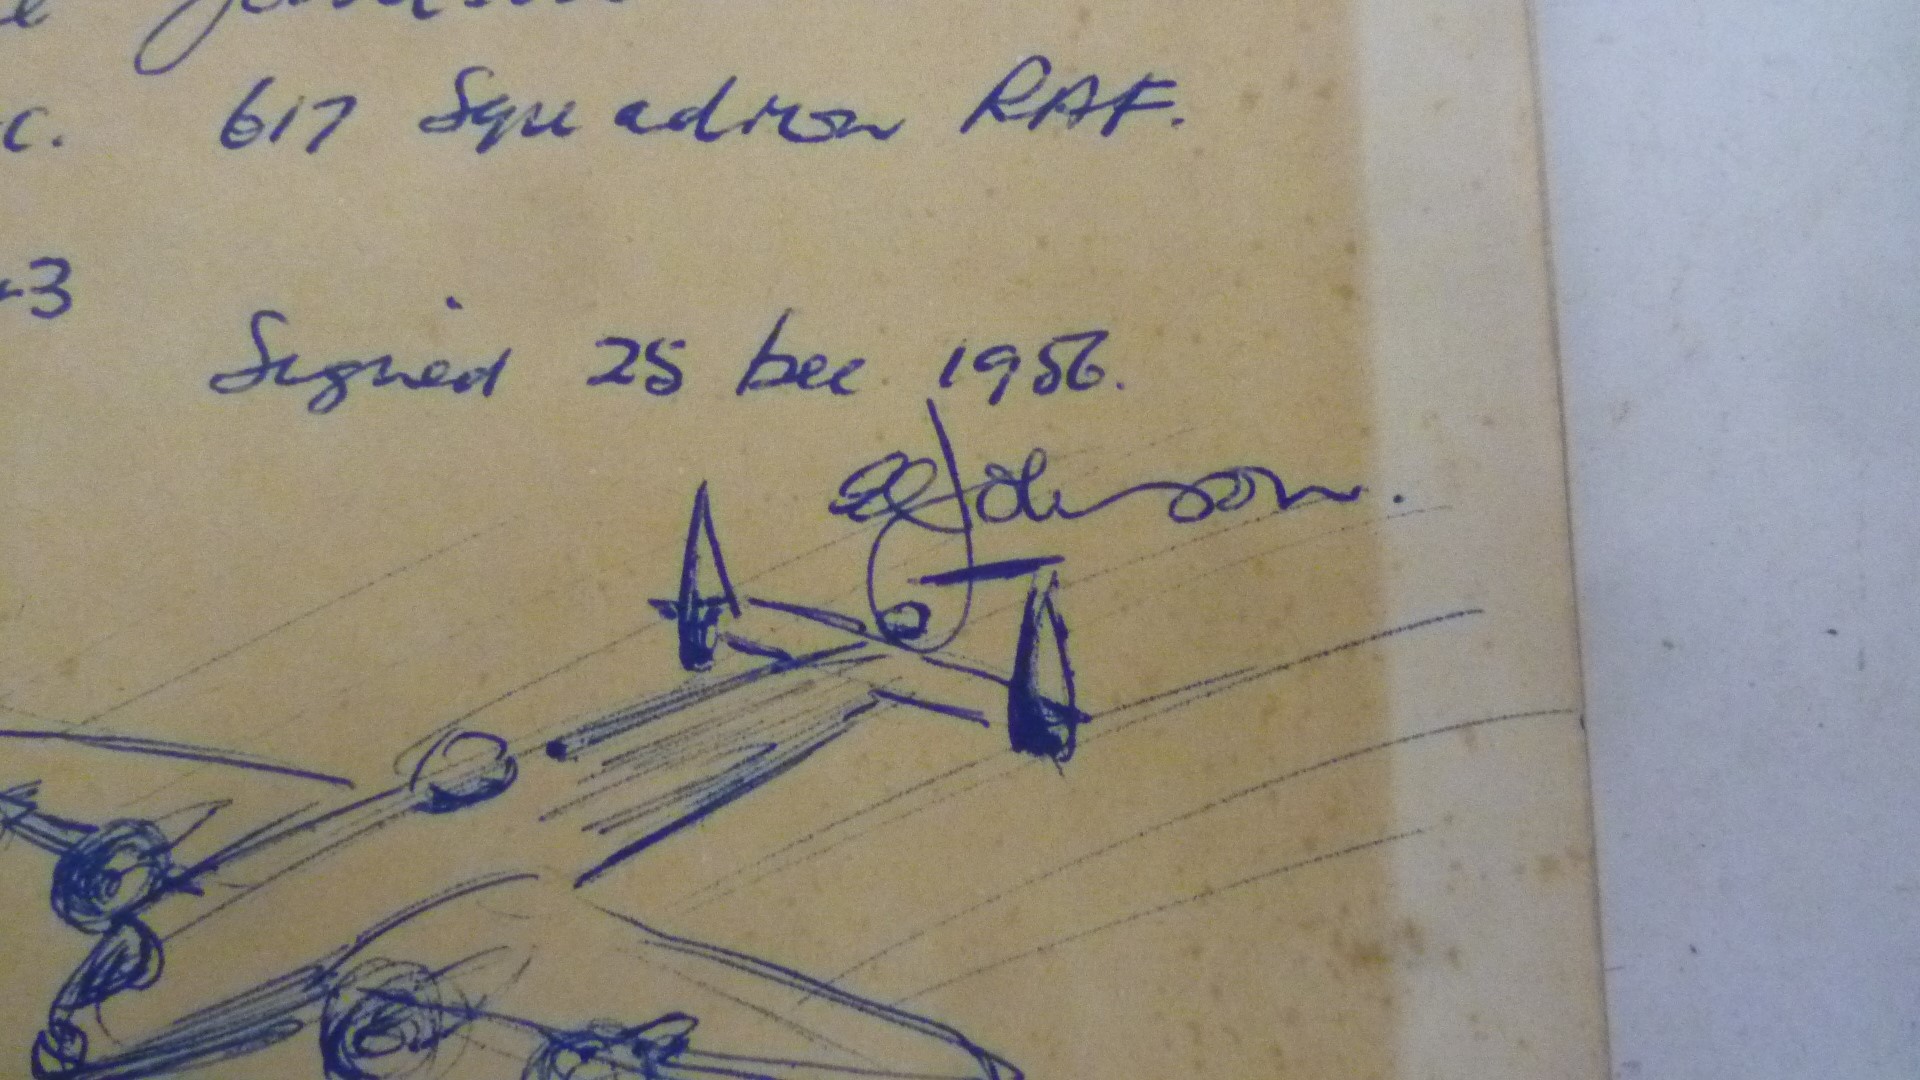 c. 617 Squadron RAF.
-3
Signed 25 Dec 1956.
Johnson.